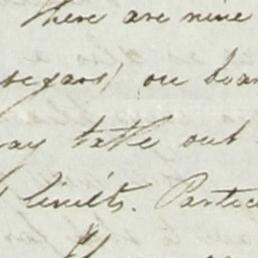 There are nine
segars) on boar
ay take out
limits. Partic